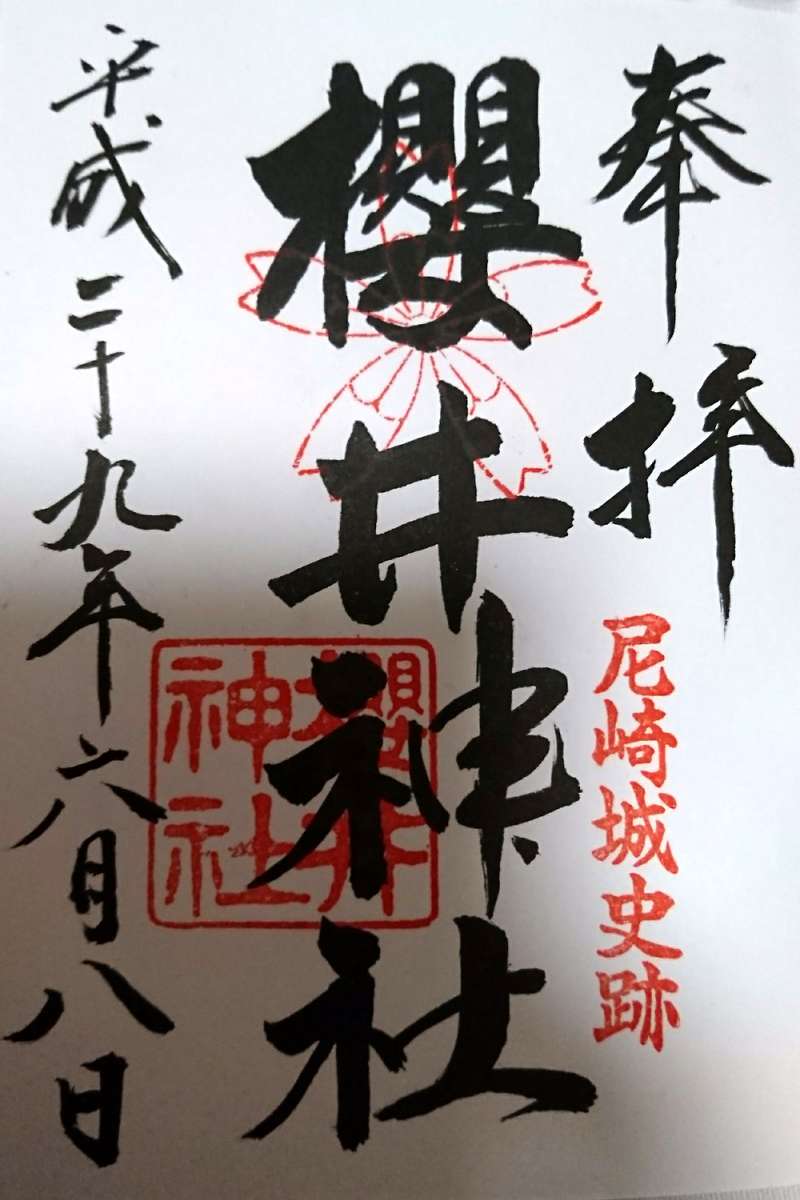 奉拝
尼崎城史跡
櫻井神社
櫻井
神社
平成二十九年六月八日